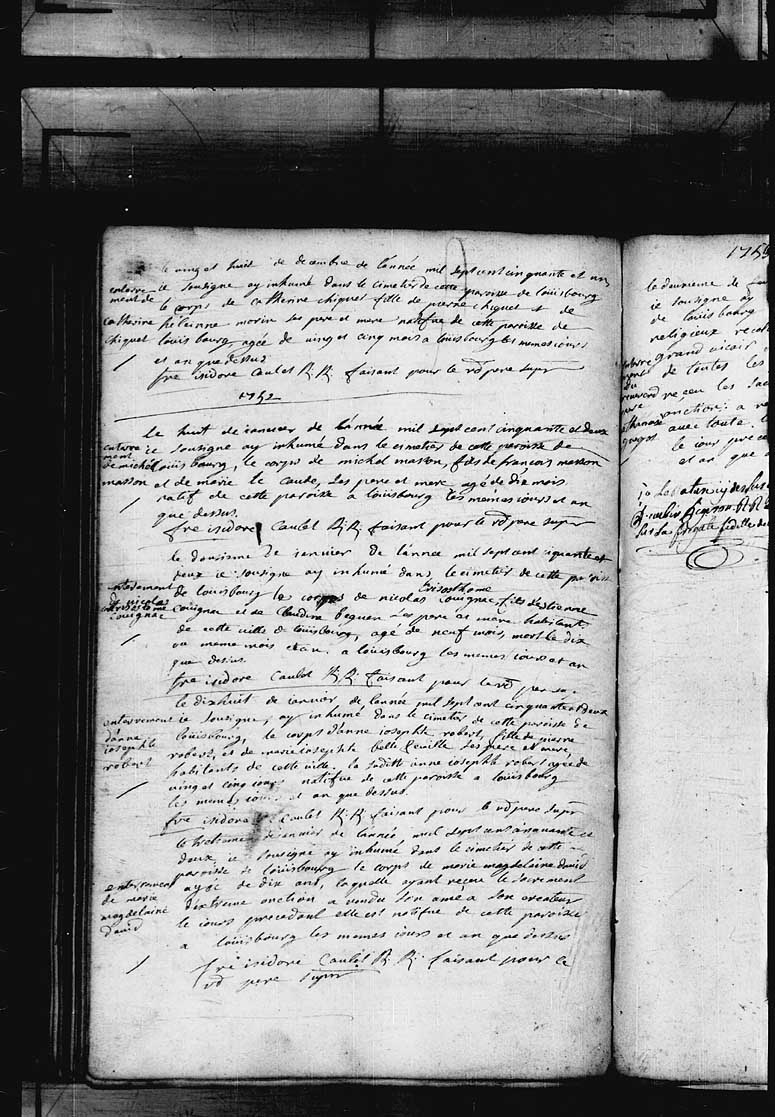 le vingt huit de decembre de l'année mil sept cent cinquante et un
enterre ie sousigne ay inhumé dans le cimetier de cette paroisse de louisbourg
ment de le corps de catherine chiquet fille de pierre chiquet et de
catherine helenne morin ses pere et mere natifve de cette paroisse de
chiquet louisbourg, agée de vingt et cinq mois a louisbourg les memes iours
et an que dessus
fre isidore Caulet R. R. faisant pour le rd pere supr
1752
le huit de ianvier de l'année mil sept cent cinquante et deux
enterre ie sousigne ay inhumé dans le cimetier de cette paroisse de
ment
de michel louisbourg, le corps de michel masson, fils de francois masson
masson et de marie la Caude, ses pere et mere agé de dix mois
natif de cette paroisse a louisbourg les mêmes iours et an
que dessus.
frere isidore Caulet R. R. faisant pour le rd pere super
le dousisme de ianvier de l'année mil sept cent cinquante et
deux ie sousigne ay inhumé dans le cimetier de cette paroisse
enterement de louisbourg le corps de nicolas crisosthome couignac, fils d'estienne
de nicolas
crisostome couignac et de Claudine beguen ses pere et mere habitants
couignac
de cette ville de louisbourg, agé de neuf mois, mort le dix
du meme mois et an. a louisbourg les memes iours et an
que dessus.
frere isidore Caulet R. R. faisant pour le rd pere su.
le dixhuit de ianvier de l'année mil sept cent cinquante et deux
enterrement ie sousigne, ay inhumé dans le cimetier de cette paroisse de
d'anne louisbourg, le corps d'anne iosephte robert, fille de pierre
iosephte robert, et de marie iosephte belle feuille ses pere et mere,
robert habitants de cette ville. la ditte anne iosephte robert agée de
vingt et cinq iours natifve de cette paroisse a louisbourg
les memes iours et an que dessus.
fre isidore Caulet R. R. faisant pour le rd pere supr
le de ianvier de l'année mil sept cent cinquante et
deux ie sousigné ay inhumé dans le cimetier de cette
paroisse de louisbourg le corps de marie magdelaine david
enterrement agée de dix ans, laquelle ayant receu le sacrement
de marie d'extreme onction a rendu son ame a son createur
magdelaine le iour precedant elle est natifve de cette paroisse
david
a louisbourg les memes iours et an que dessus
frere isidore Caulet R. R. faisant pour le
rd pere supr
175
le deuxieme de
ie sousigne ay
de louisbourg
religieux reco
grand vicair
de toutes les
receu les sac
onction: a re
avec toute l
le iour prece
et an que d